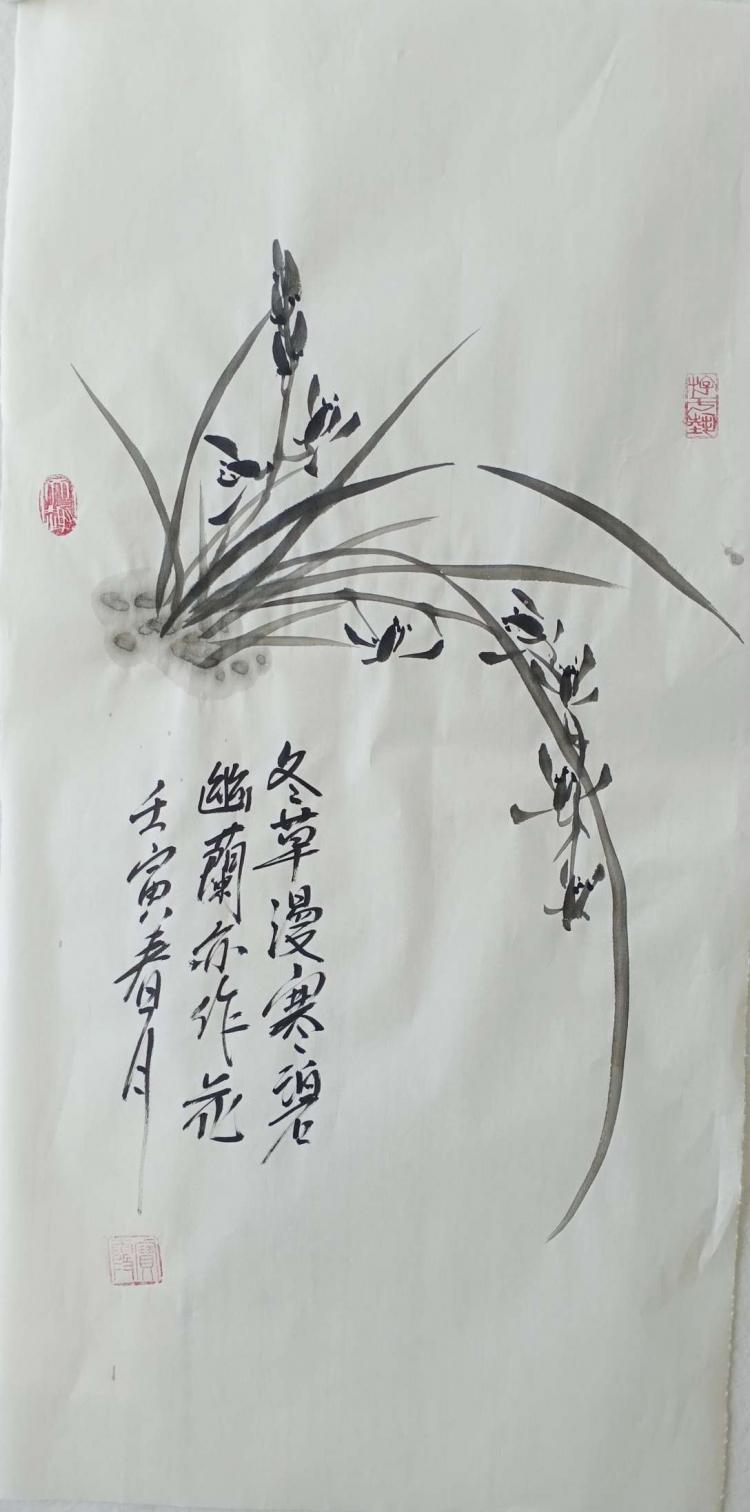 冬草漫寒碧
幽蘭亦作花
壬寅春月
游于藝